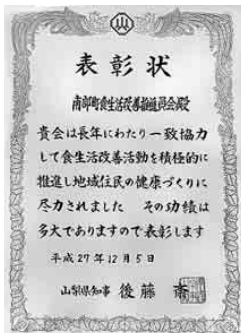 表彰状
南部町食生活改善推進員会殿
貴会は長年にわたり一致協力
して食生活改善活動を積極的に
推進し地域住民の健康づくりに
尽力されました その功績は
多大でありますので表彰します
平成27年12月5日
山梨県知事 後藤 斎